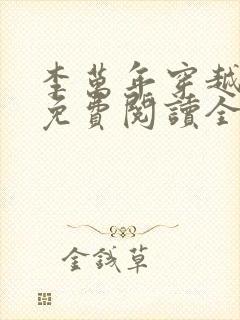 李萬年穿越
免費閱讀全
金錢草